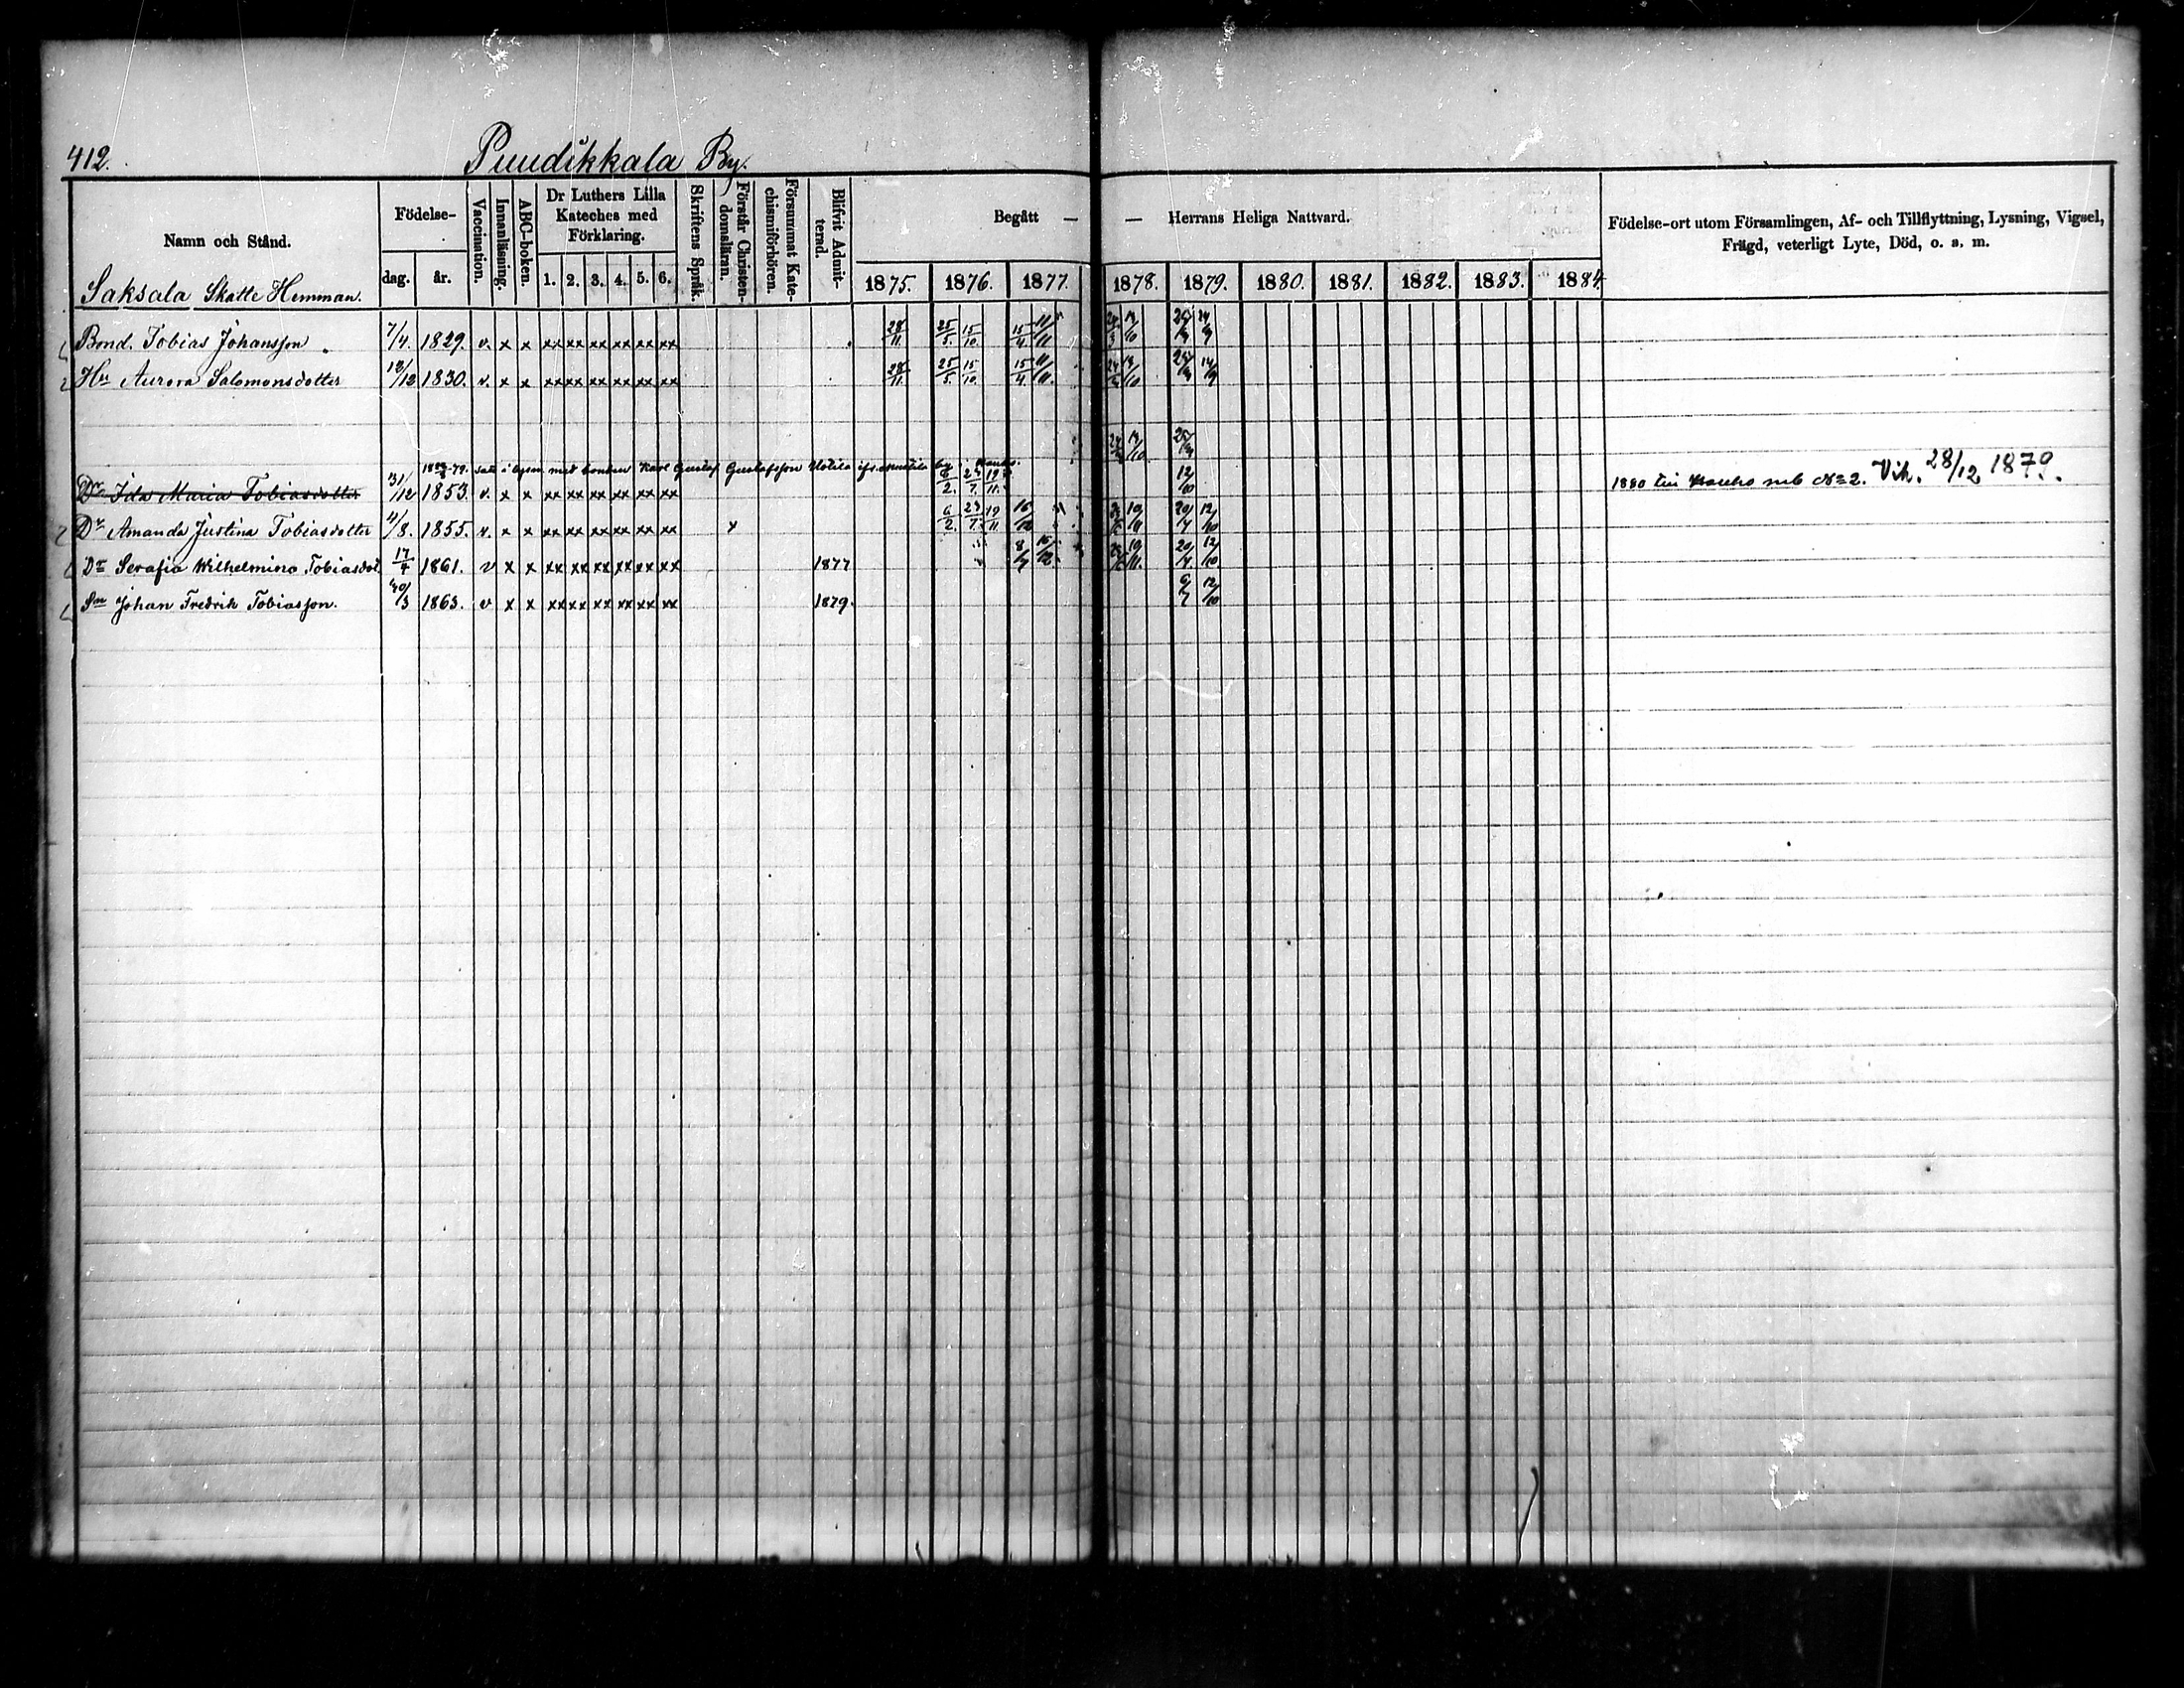 412.
Puudikkala By.
Namn och Stånd.
Födelse-
dag. år.
Vaccination.
Innanläsning.
ABC-boken.
Dr Luthers Lilla Kateches med Förklaring.
1. 2. 3. 4. 5. 6.
Skriftens Språk.
Förstår Christendomsläran.
Försummat Katechismiförhören.
Blifvit Admitterad.
Begått — — Herrans Heliga Nattvard.
1875. 1876. 1877. 1878. 1879. 1880. 1881. 1882. 1883. 1884
Födelse-ort utom Församlingen, Af- och Tillflyttning, Lysning, Vigsel,
Frägd, veterligt Lyte, Död, o. s. m.
Saksala Skatte Hemman.
Bond. Tobias Johansson 7/4. 1829. v. x x xx xx xx xx xx xx 28/11. 25/5. 15/10. 15/4 11/11 24/3 13/10
Hu Aurora Salomonsdotter 12/12 1830. v. x x xx xx xx xx xx xx 28/11. 25/5. 15/10. 15/4 11/11.
med bonden Karl Gustaf Gustafsson
Dr Ida Maria Tobiasdotter 31/12 1853. v. x x xx xx xx xx xx xx 6/2. 23/7. 19/11. 12/10 1880 till Kauho sub № 2. Vih. 28/12 1879.
Dr Amanda Justina Tobiasdotter 11/8. 1855. v. x x xx xx xx xx xx xx x 6/2. 23/7. 19/11 16/12 10/11 20/4 12/10
Dr Serafia Wilhelmina Tobiasdot 17/4 1861. v x x xx xx xx xx xx xx 1877 8/7 16/12. 10/11. 20/4. 12/10
Sn Johan Fredrik Tobiasson. 20/3 1863. v x x xx xx xx xx xx xx 1879. 6/7 12/10